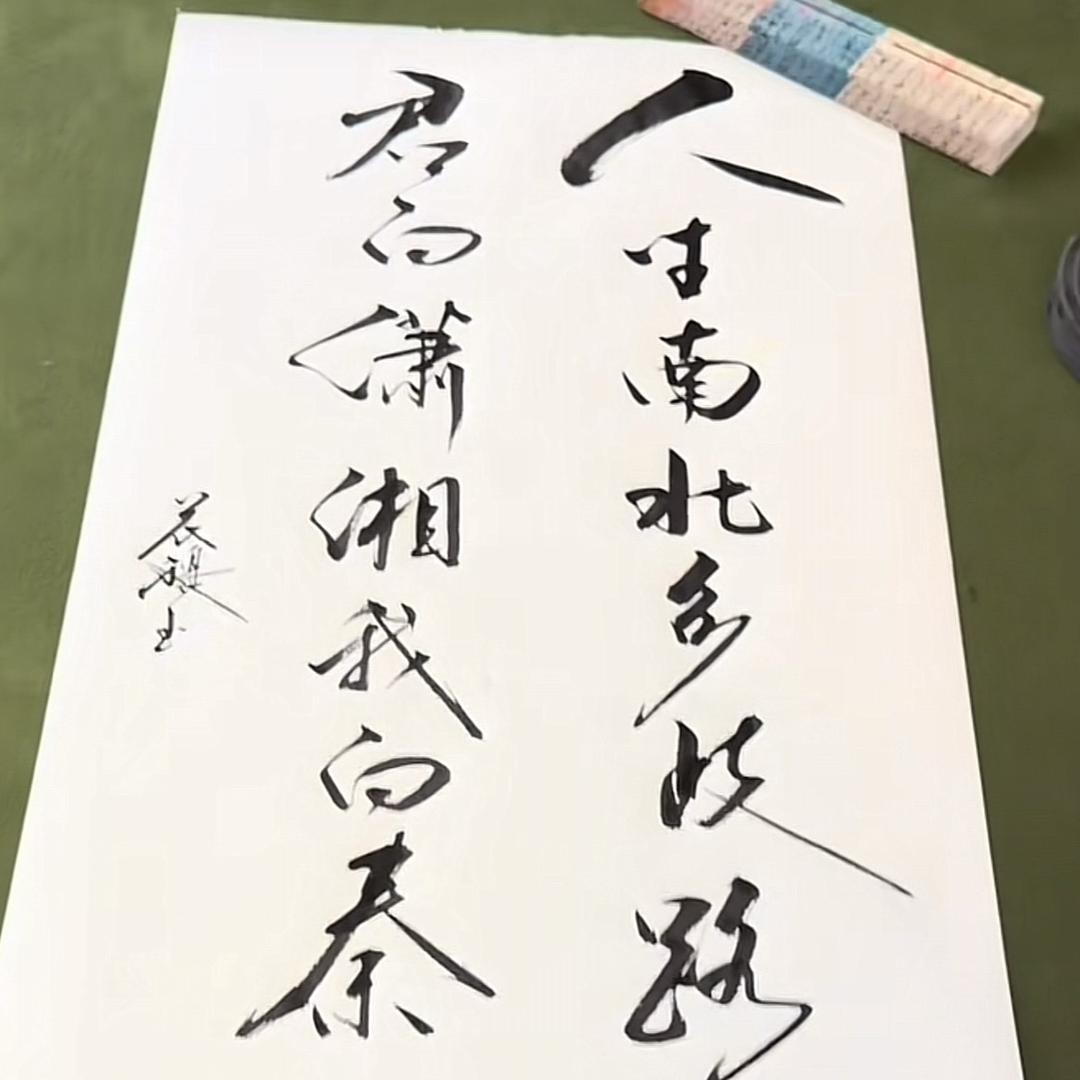 人生南北多歧路
君向潇湘我向秦